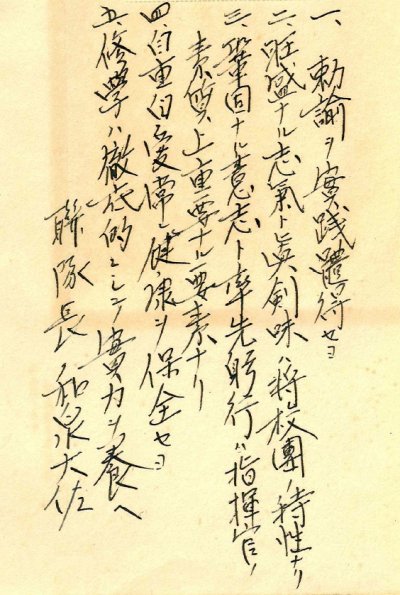 一、勅諭ヲ實践體得セヨ
二、旺盛ナル志氣ト眞剣味ハ将校團ノ特性ナリ
三、鞏固ナル意志ト率先躬行ハ指揮官ノ
素質上重要ナル要素ナリ
四、自重自愛常ニ健康ヲ保全セヨ
五、修學ハ徹底的ニシテ實力ヲ養ヘ
聯隊長 和泉大佐